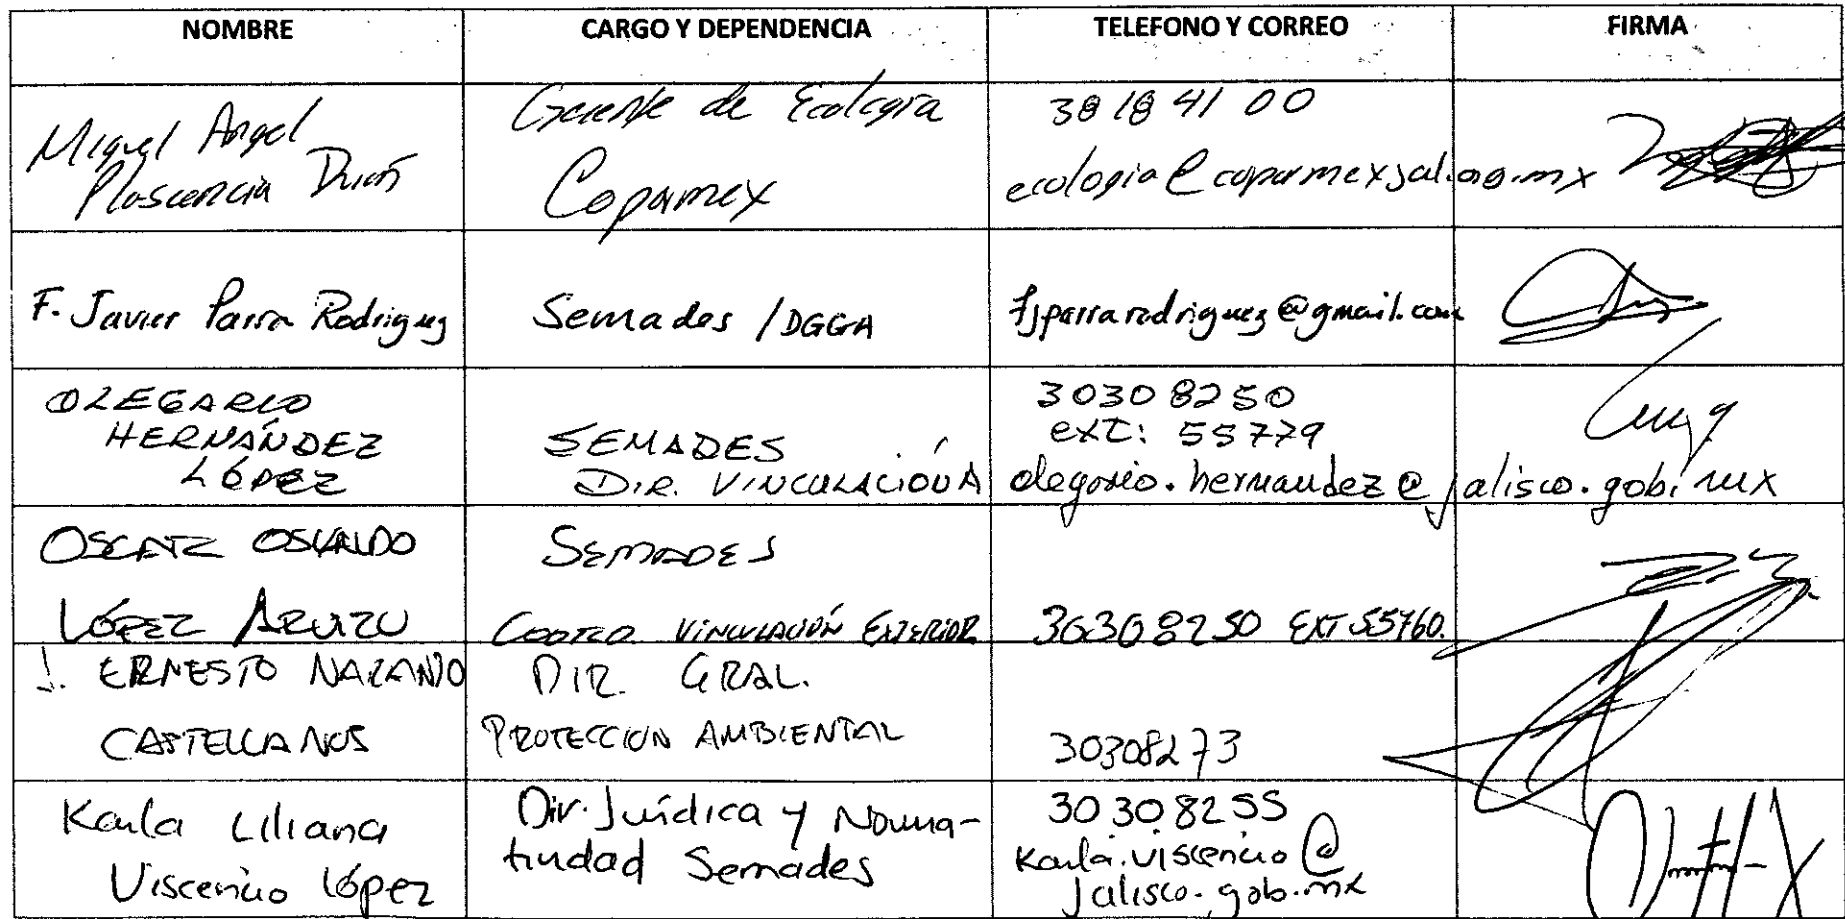 NOMBRE CARGO Y DEPENDENCIA TELEFONO Y CORREO FIRMA
Miguel Angel
Plascencia
Gerente de Ecología
Copamex
38 18 41 00
F. Javier Parra Rodriguez
Semades / DGGA
fjparrarodriguez@gmail.com
OLEGARIO
HERNÁNDEZ
LÓPEZ
SEMADES
DIR. VINCULACIÓN A
30308250
ext: 55779
olegario.hernandez@jalisco.gob.mx
OSCAR OSVALDO
LÓPEZ ARVIZU
SEMADES
VINCULACIÓN EXTERIOR
30308250 EXT 55760.
J. ERNESTO NARANJO
CASTELLANOS
DIR. GRAL.
PROTECCION AMBIENTAL
30308273
Karla Liliana
Viscencio López
Dir. Jurídica y Norma-
tividad Semades
30308255
Karla.viscencio@
jalisco.gob.mx